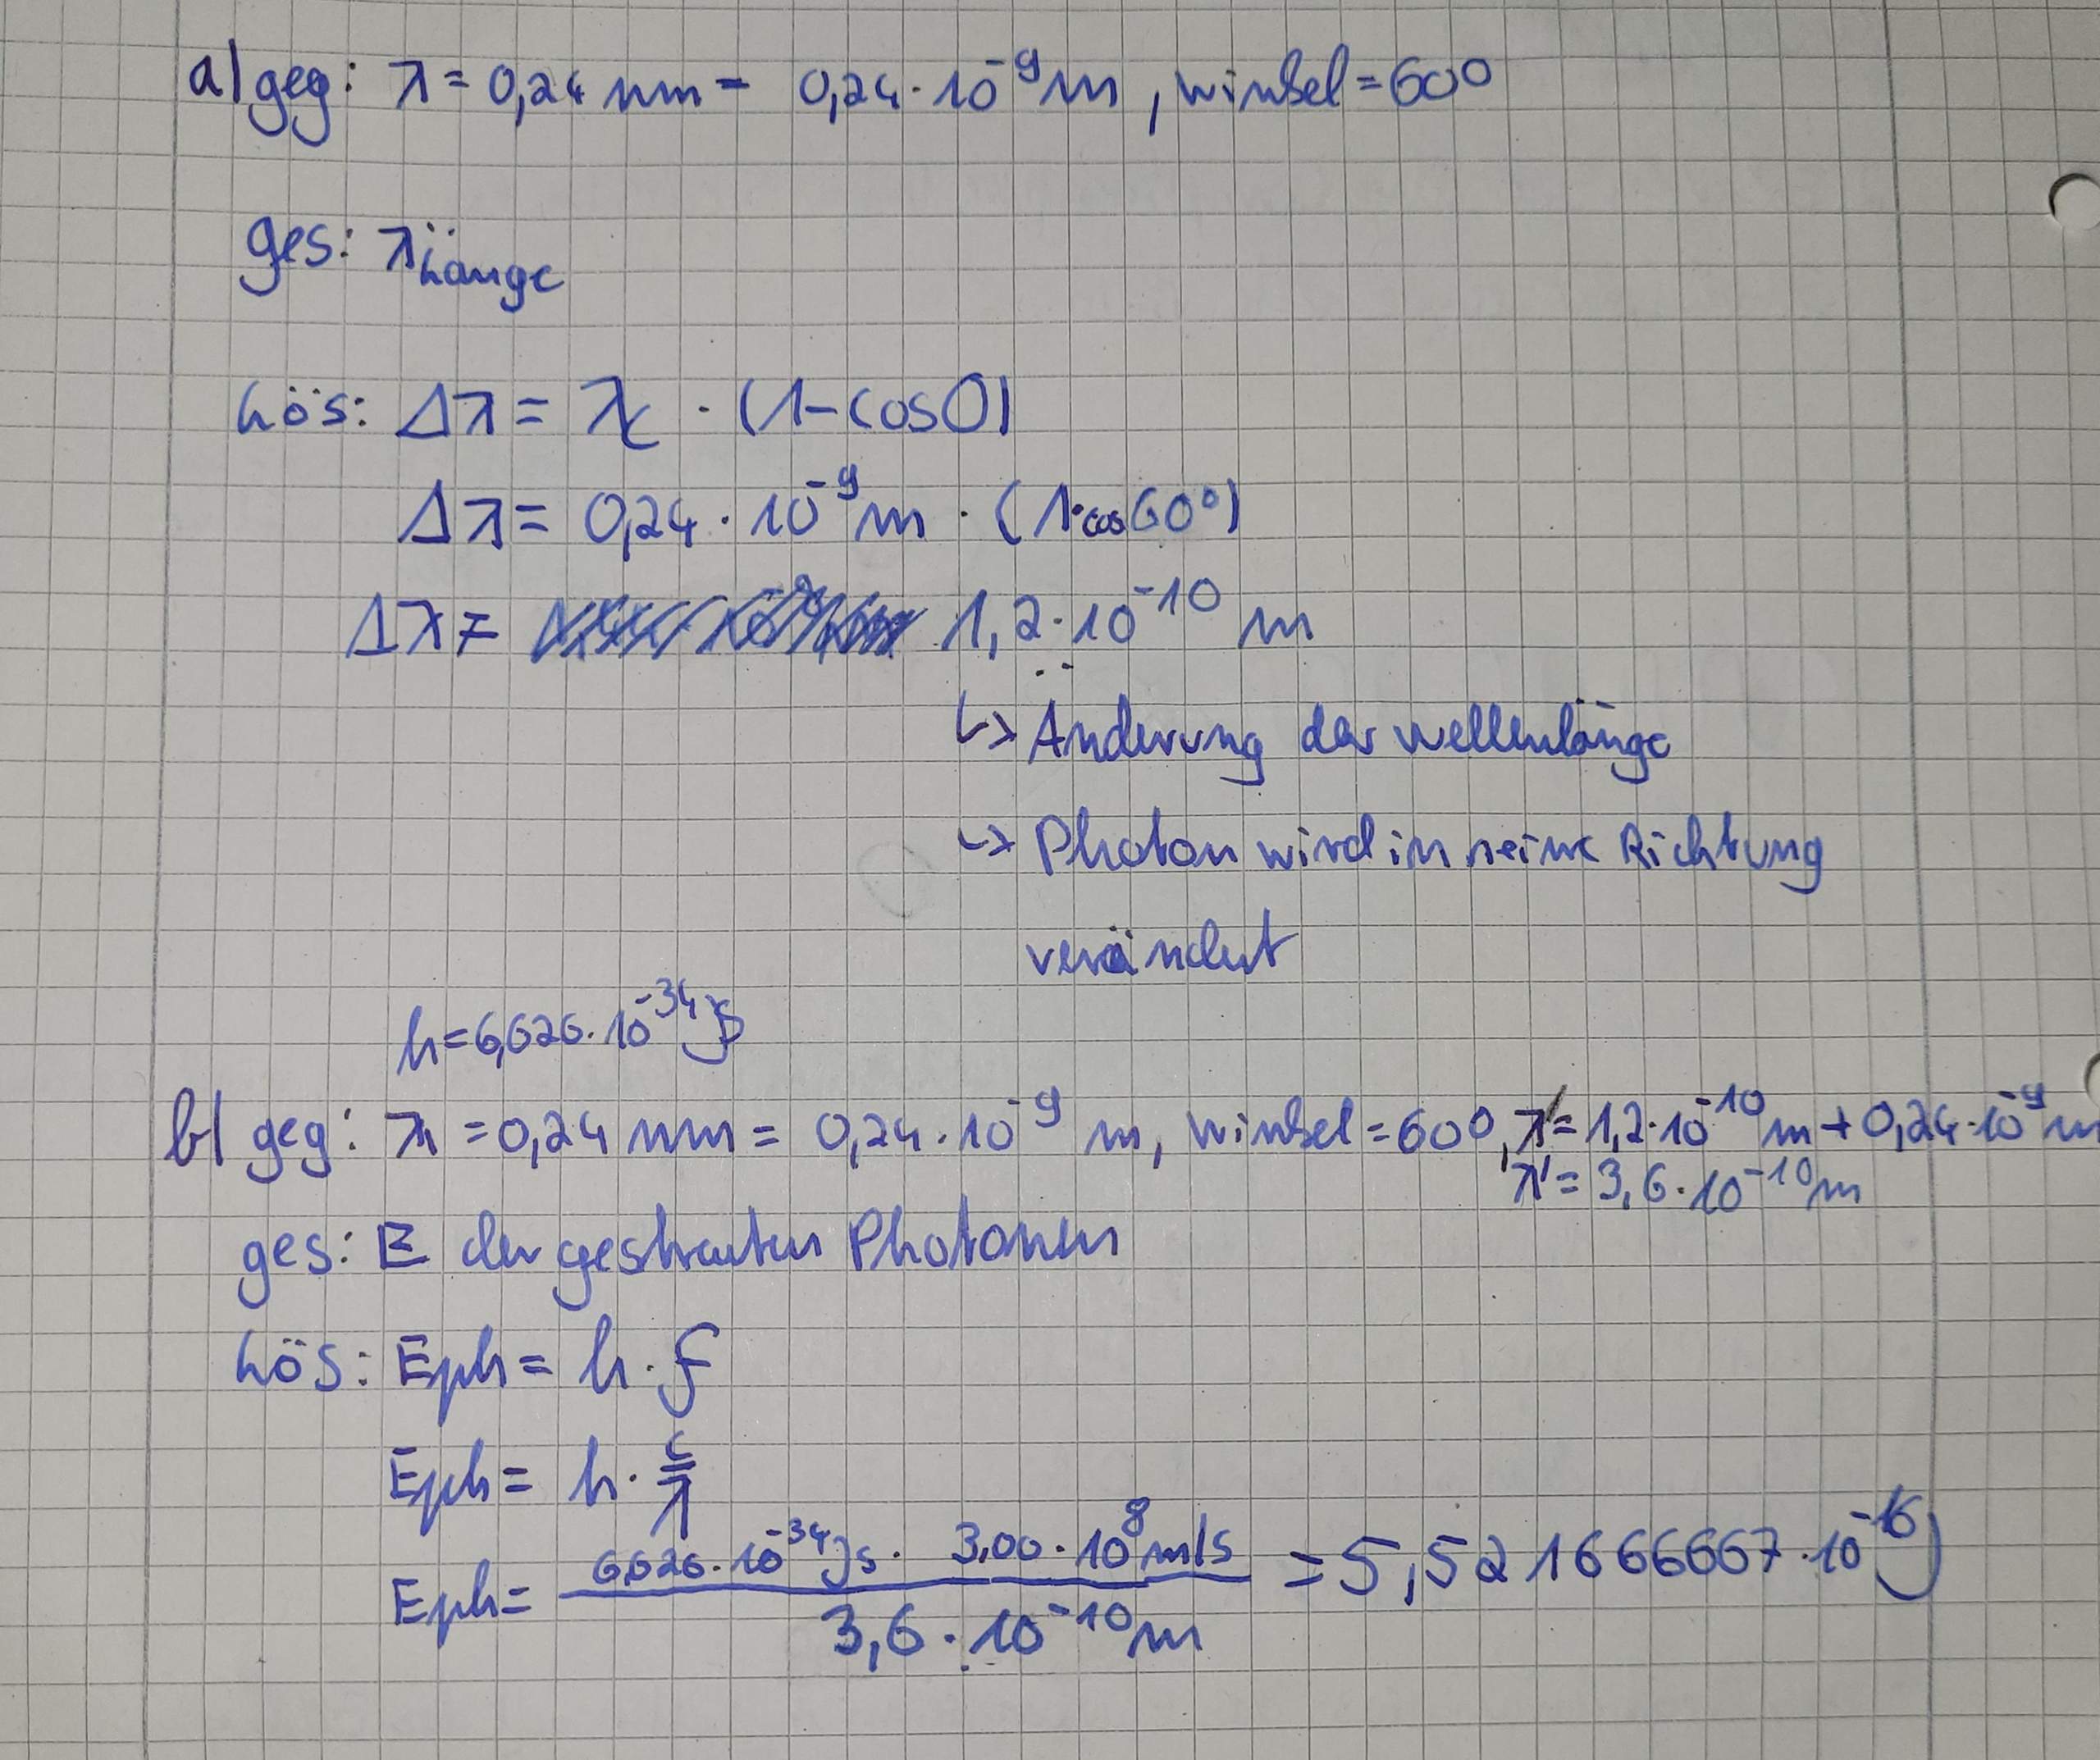 a) geg: λ = 0,24 nm = 0,24 · 10⁻⁹ m, winkel = 60°
ges: λ Länge
Lös: Δλ = λc · (1 - cosθ)
Δλ = 0,24 · 10⁻⁹ m · (1-cos60°)
Δλ = 1,2 · 10⁻¹⁰ m
↳ Änderung der wellenlänge
↳ Photon wird in seine Richtung
verändert
h = 6,626 · 10⁻³⁴ Js
b) geg: λ = 0,24 nm = 0,24 · 10⁻⁹ m, winkel = 60°, λ' = 1,2 · 10⁻¹⁰ m + 0,24 · 10⁻⁹ m
λ' = 3,6 · 10⁻¹⁰ m
ges: E der gestreuten Photonen
Lös: Eph = h · f
Eph = h · c/λ
Eph = 6,626 · 10⁻³⁴ Js · 3,00 · 10⁸ m/s / 3,6 · 10⁻¹⁰ m = 5,521666667 · 10⁻¹⁶ J